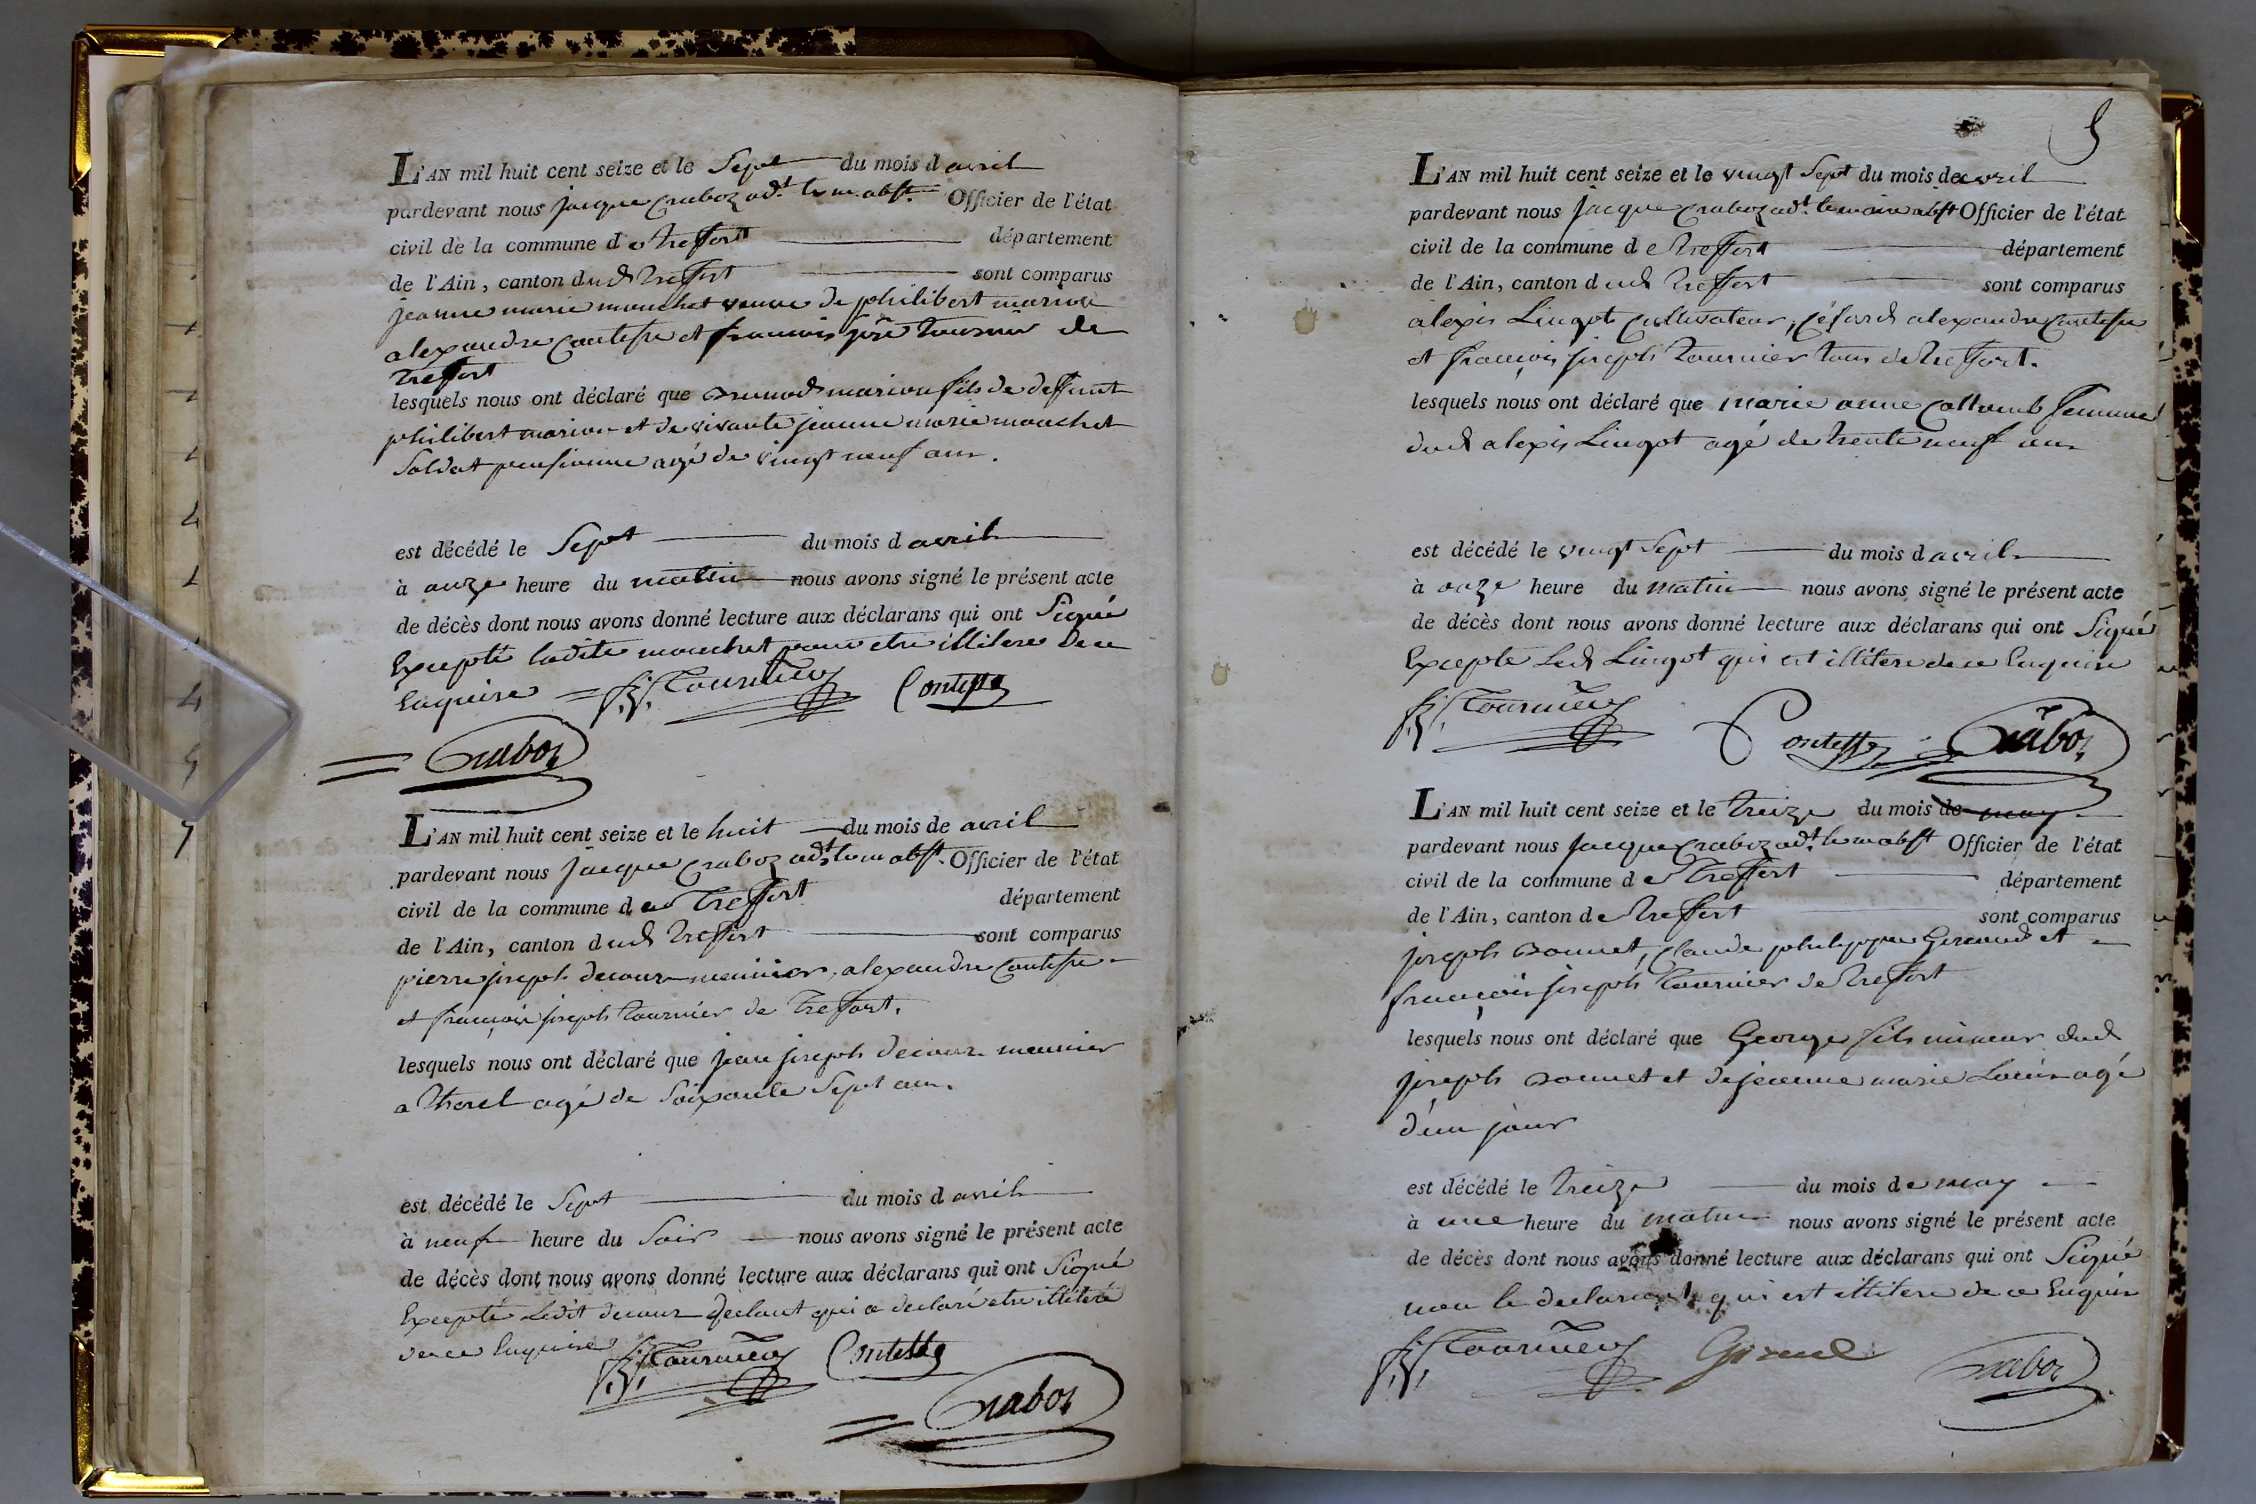 L'AN mil huit cent seize et le Sept du mois d avril
pardevant nous jacque Craboz adt. le m abst. Officier de l'état
civil de la commune d e treffort département
de l'Ain, canton dud treffort sont comparus
jeanne marie mouchet veuve de philibert marion
alexandre Contesse et francois jph tournier de
treffort
lesquels nous ont déclaré que marion fils de deffunt
philibert marion et de vivante jeanne marie mouchet
Soldat pensionne agé de vingt neuf ans.
est décédé le Sept du mois d avril
à onze heure du matin nous avons signé le présent acte
de décès dont nous avons donné lecture aux déclarans qui ont Signé
Excepté ladite mouchet pour etre illitere de ce
Enquise f. j. Tournier Contesse
Craboz
L'AN mil huit cent seize et le huit du mois de avril
pardevant nous jacque Craboz adt. le m abst. Officier de l'état
civil de la commune d e Treffort département
de l'Ain, canton dud treffort sont comparus
pierre joseph decour meunier, alexandre Contesse
et françois joseph tournier de treffort.
lesquels nous ont déclaré que jean joseph decour meunier
a agé de Soixante Sept ans.
est décédé le Sept du mois d avril
à neuf heure du Soir nous avons signé le présent acte
de décès dont nous avons donné lecture aux déclarans qui ont Signé
Excepté Ledit decour declant qui a declaré etre illiteré
de ce Enquise f. j. Tournier Contesse
Craboz
5
L'AN mil huit cent seize et le vingt Sept du mois de avril
pardevant nous jacque Craboz adt. le maire abst Officier de l'état
civil de la commune d e treffort département
de l'Ain, canton dud treffort sont comparus
alexis Lingot Cultivateur, alexandre Contesse
et françois joseph tournier tous de treffort.
lesquels nous ont déclaré que marie anne Collomb femme
dud alexis Lingot agé de trente neuf ans
est décédé le vingt Sept du mois d avril
à onze heure du matin nous avons signé le présent acte
de décès dont nous avons donné lecture aux déclarans qui ont Signé
Excepte Led Lingot qui est illitere de ce Enquise
f. j. Tournier Contesse Craboz
L'AN mil huit cent seize et le treize du mois de may
pardevant nous jacque Craboz adt. le m abst Officier de l'état
civil de la commune d e Treffort département
de l'Ain, canton d e treffort sont comparus
joseph bonnet, Claude philippe Giraud et
françois joseph tournier de treffort
lesquels nous ont déclaré que George fils mineur dud
joseph bonnet et de jeanne marie agé
d'un jour
est décédé le treize du mois d e may
à une heure du matin nous avons signé le présent acte
de décès dont nous avons donné lecture aux déclarans qui ont Signé
non le declarant qui est illitere de ce Enquis
f. j. Tournier Giraud Craboz